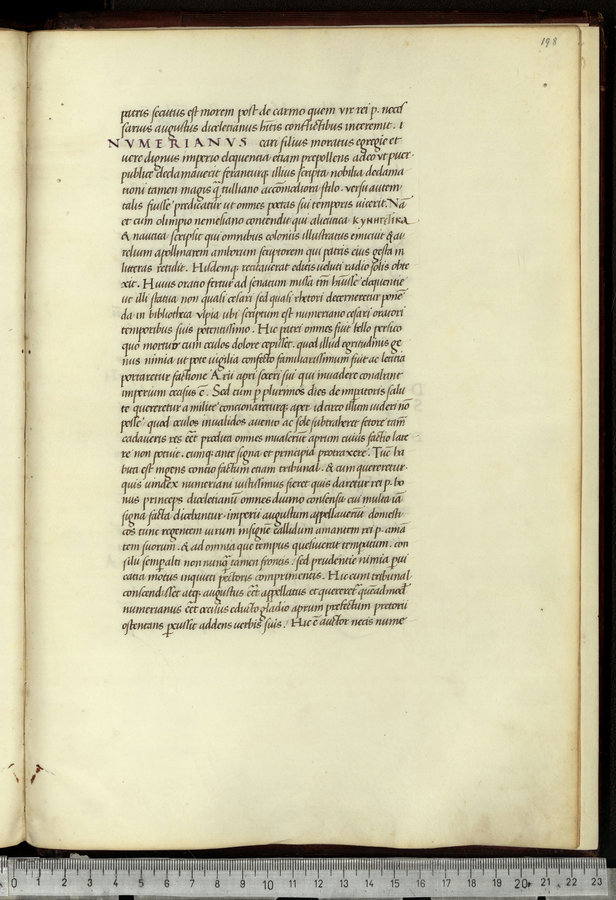 198
patris secutus est morem post de carmo quem vir rei p. neces
sarius augustus diocletianus hictis conflictibus interemit. i
NVMERIANVS cari filius moratus egregie et
uere dignus imperio eloquentia etiam prepollens adeo ut puer
publice declamauerit feranturq; illius scripta nobilia declama
tioni tamen magis q̃ tulliano accõmodiora stilo. versu autem
talis fuisse predicatur ut omnes poetas sui temporis vicerit. Nã
et cum olimpio nemesiano contendit qui alieutica κυνηγετικα
& nautica scripsit qui omnibus coloniis illustratus emicuit & au
relium apollinarem iamborum scriptorem qui patris eius gesta in
litteras retulit. Hisdemq; recitauerat editis ueluti radio solis obte
xit. Huius oratio fertur ad senatum missa tm̃ hũisse eloquentie
ut illi statua non quasi cesari sed quasi rhetori decerneretur ponẽ
da in bibliotheca vlpia ubi scriptum est numeriano cesari oratori
temporibus suis potentissimo. Hic patri omnes fuit bello persico
quo mortuo cum oculos dolore cepisset. quod illud egritudinis ge
nus nimia ut pote uigilia confecto familiarissimum fuit ac lectica
portaretur factione Arii apri soceri sui qui inuadere conabatur
imperium occisus ẽ. Sed cum p plurimos dies de imperatoris salu
te quereretur a milite concionareturq; aper idcirco illum uideri nõ
posse quod oculos inualidos auento ac sole subtraheret fetore tam̃
cadaueris res eẽt prodita omnes inuaserũt aprum cuius factio late
re non potuit. eumq; ante signa et principia protraxere. Tũc ha
bita est ingens contio factum etiam tribunal. & cum quereretur
quis uindex numeriani iustissimus fieret quis daretur rei p. bo
nus princeps diocletianũ omnes diuino consensu cui multa iã
signa facta dicebantur imperii augustum appellauerũt domesti
cos tunc regentem uirum insignẽ callidum amantem rei p. amã
tem suorum. & ad omnia que tempus quesiuerat temperatum. con
silii semp alti non nunq̃ tamen frontis. sed prudentie nimia pui
catia motus inquieti pectoris comprimentis. Hic cum tribunal
conscendisset atq; augustus eẽt appellatus et quereretᷣ queadmodũ
numerianus eẽt occisus educto gladio aprum prefectum pretorii
ostentans pcussit addens uerbis suis. Hic ẽ auctor necis nume